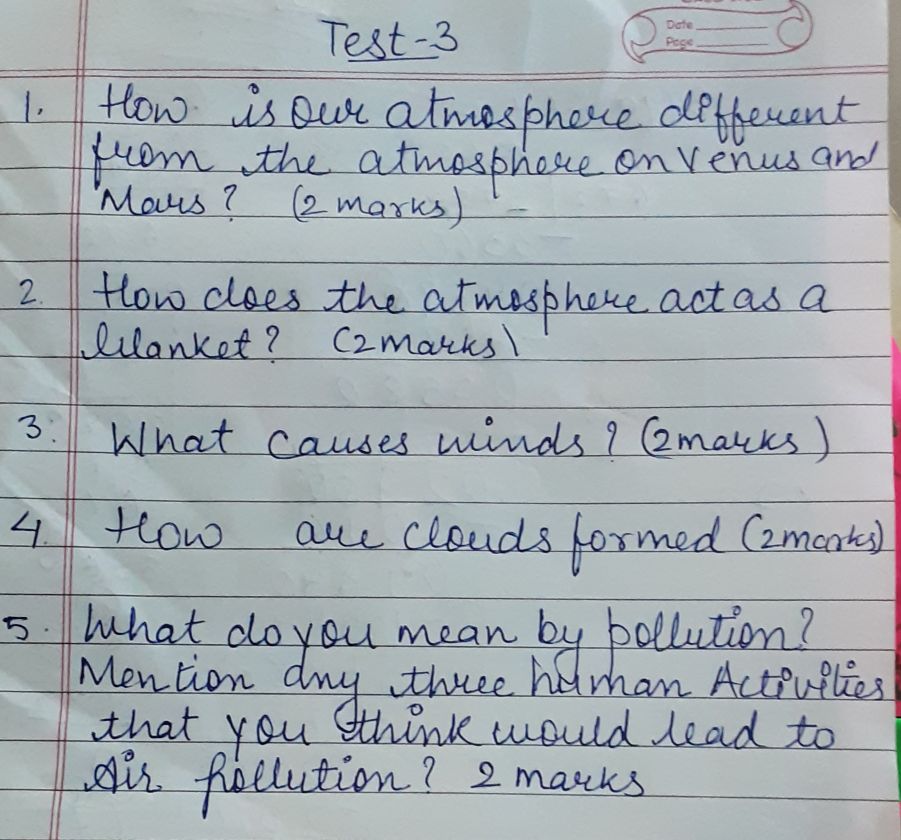 Test-3
Date
Page
1. How is our atmosphere different
from the atmosphere on Venus and
Mars? (2 marks) -
2. How does the atmosphere act as a
blanket? (2 marks)
3. What causes winds? (2 marks)
4. How are clouds formed (2 marks)
5. What do you mean by pollution?
Mention any three human Activities
that you think would lead to
Air pollution? 2 marks